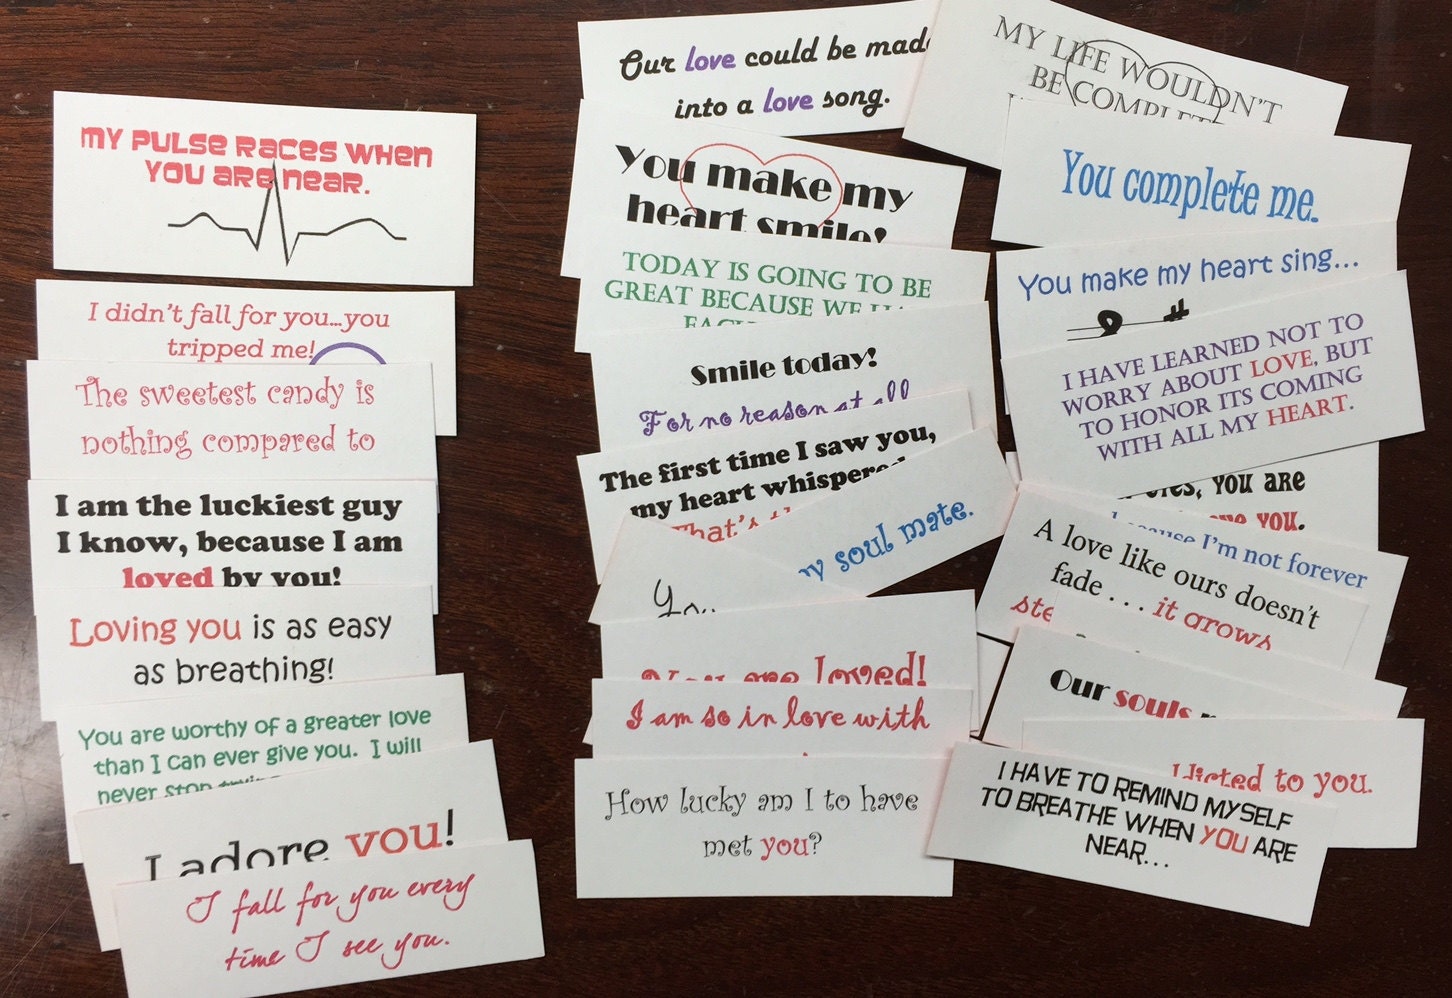 MY PULSE RACES WHEN
YOU ARE NEAR.
I didn't fall for you...you
tripped me!
The sweetest candy is
nothing compared to
I am the luckiest guy
I know, because I am
loved by you!
Loving you is as easy
as breathing!
You are worthy of a greater love
than I can ever give you. I will
never stop
I adore you!
I fall for you every
time I see you.
Our love could be made
into a love song.
You make my
heart smile!
TODAY IS GOING TO BE
GREAT BECAUSE WE
Smile today!
For no reason at all
The first time I saw you,
my heart whispered
That's
soul mate.
You
You are loved!
I am so in love with
How lucky am I to have
met you?
MY LIFE WOULDN'T
BE COMPLETE
You complete me.
You make my heart sing...
I HAVE LEARNED NOT TO
WORRY ABOUT LOVE, BUT
TO HONOR ITS COMING
WITH ALL MY HEART.
YOU ARE
YOU.
I'm not forever
A love like ours doesn't
fade . . . it grows
Our souls
to you.
I HAVE TO REMIND MYSELF
TO BREATHE WHEN YOU ARE
NEAR...